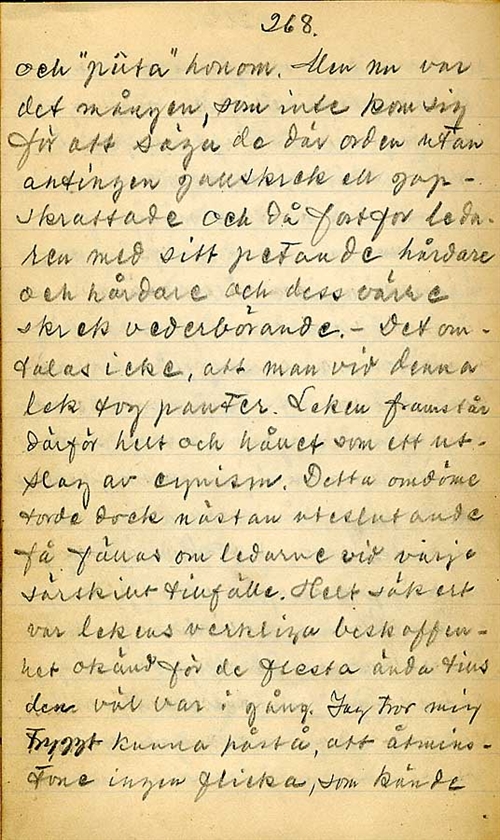 268.
och "püta" honom. Men nu var
det mången, som inte kom sig
för att säga de där orden utan
antingen gallskrek ell gap-
skrattade och då fortfor leda-
ren med sitt petande hårdare
och hårdare och dess värre
skrek vederbörande. – Det om-
talas icke, att man vid denna
lek tog panter. Leken framstår
därför helt och hållet som ett ut-
slag av cynism. Detta omdöme
torde dock nästan uteslutande
få fällas om ledarne vid varje
särskilt tillfälle. Helt säkert
var lekens verkliga beskaffen-
het okänd för de flesta ända tills
den väl var i gång. Jag tror mig
tryggt kunna påstå, att åtmins-
tone ingen flicka, som kände